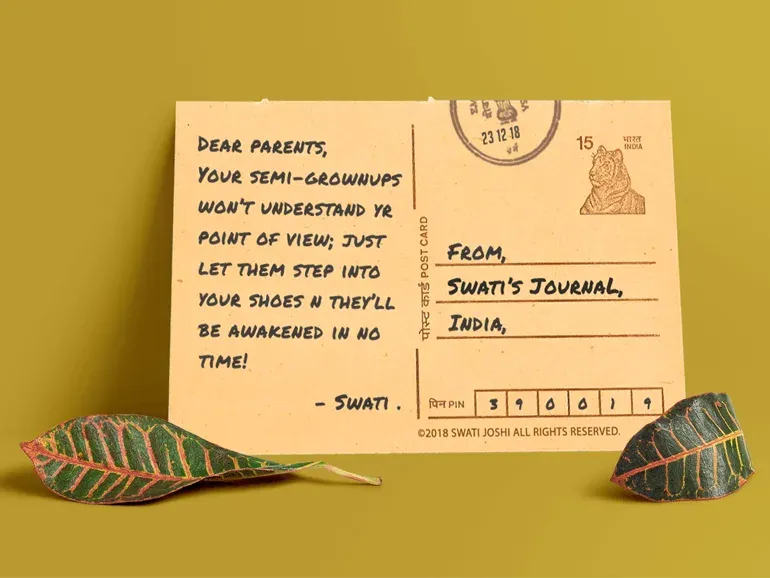 DEAR PARENTS,
YOUR SEMI-GROWNUPS
WON'T UNDERSTAND YR
POINT OF VIEW; JUST
LET THEM STEP INTO
YOUR SHOES N THEY'LL
BE AWAKENED IN NO
TIME!
- SWATI .
पोस्ट कार्ड POST CARD
23 12 18
15 भारत
INDIA
FROM,
SWATI'S JOURNAL,
INDIA,
पिन PIN 3 9 0 0 1 9
©2018 SWATI JOSHI ALL RIGHTS RESERVED.